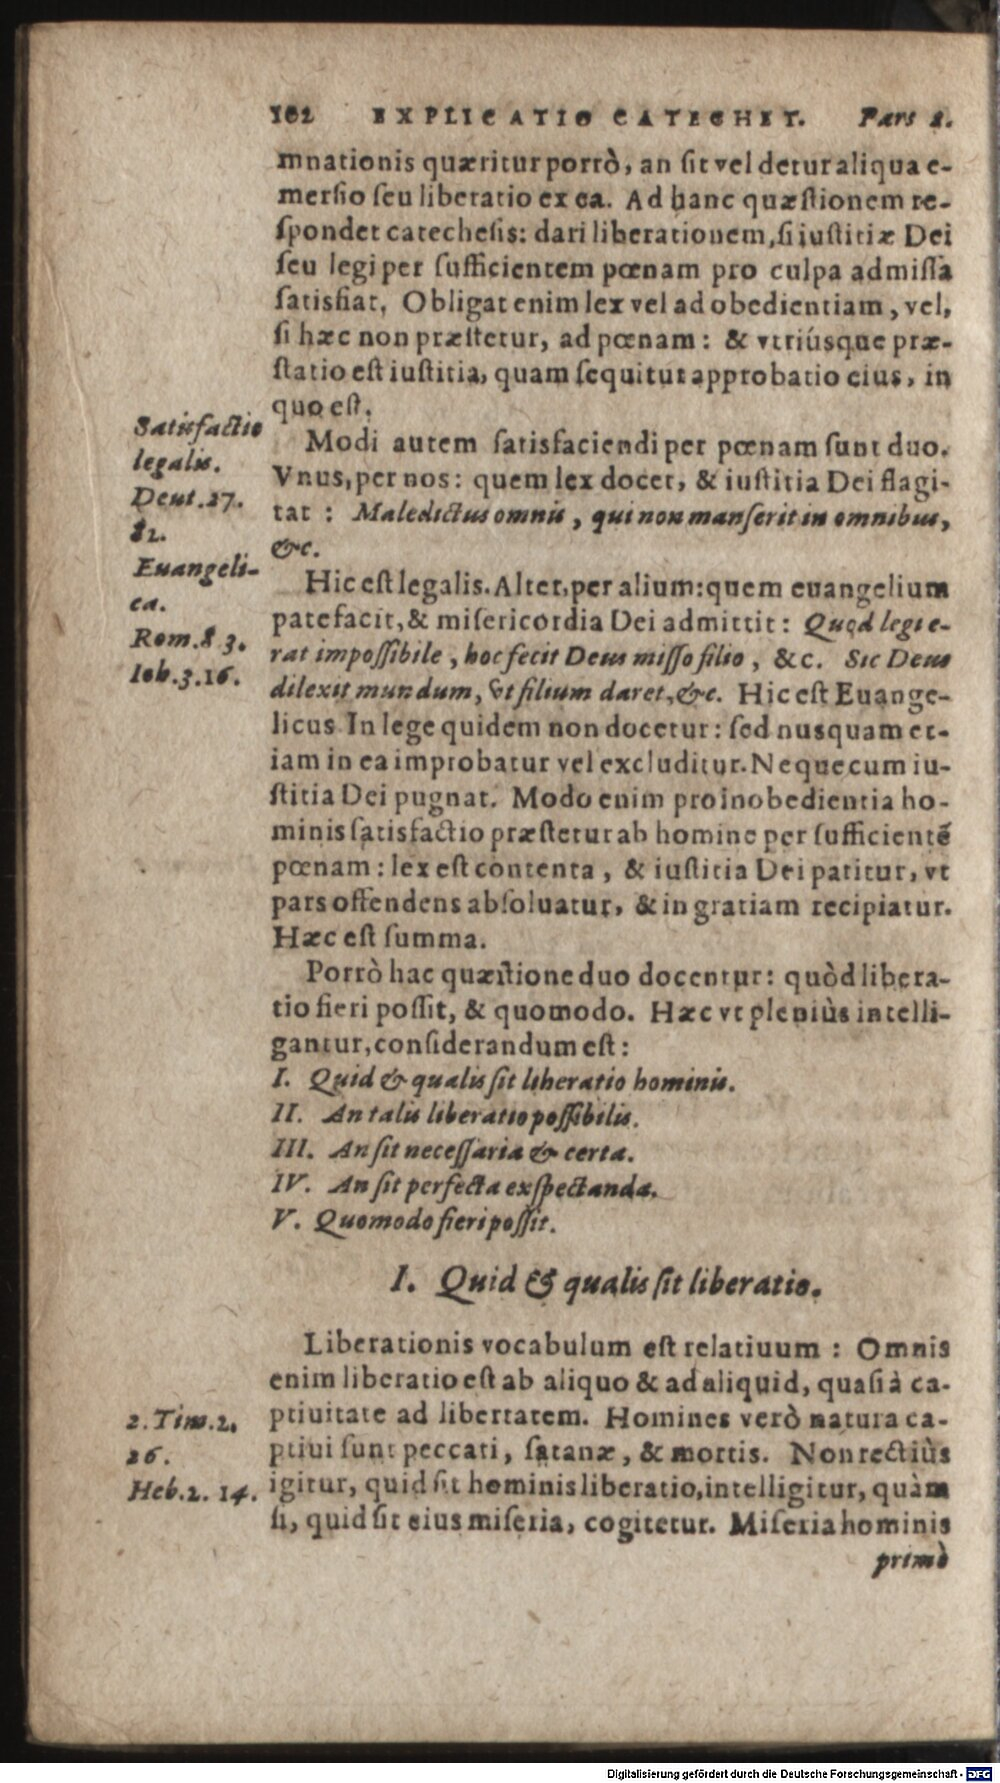 102 EXPLICATIO CATECHET. Pars 2.
mnationis quæritur porrò, an sit vel detur aliqua e-
mersio seu liberatio ex ea. Ad hanc quæstionem re-
spondet catechesis: dari liberationem, si iustitiæ Dei
seu legi per sufficientem pœnam pro culpa admissa
satisfiat. Obligat enim lex vel ad obedientiam, vel,
si hæc non præstetur, ad pœnam: & vtriúsque præ-
statio est iustitia, quam sequitur approbatio eius, in
quo est.
Modi autem satisfaciendi per pœnam sunt duo.
Vnus, per nos: quem lex docet, & iustitia Dei flagi-
tat: Maledictus omnis, qui non manserit in omnibus,
&c.
Satisfactio
legalis.
Deut. 27.
82.
Hic est legalis. Alter, per alium: quem euangelium
patefacit, & misericordia Dei admittit: Quod legi e-
rat impossibile, hoc fecit Deus misso filio, &c. Sic Deus
dilexit mundum, vt filium daret, &c. Hic est Euange-
licus In lege quidem non docetur: sed nusquam et-
iam in ea improbatur vel excluditur. Neque cum iu-
stitia Dei pugnat. Modo enim pro inobedientia ho-
minis satisfactio præstetur ab homine per sufficientẽ
pœnam: lex est contenta, & iustitia Dei patitur, vt
pars offendens absoluatur, & in gratiam recipiatur.
Hæc est summa.
Euangeli-
ca.
Rom. 8 3.
Ioh. 3. 16.
Porrò hac quæstione duo docentur: quòd libera-
tio fieri possit, & quomodo. Hæc vt pleniùs intelli-
gantur, considerandum est:
I. Quid & qualis sit liberatio hominis.
II. An talis liberatio possibilis.
III. An sit necessaria & certa.
IV. An sit perfecta exspectanda.
V. Quomodo fieri possit.
I. Quid & qualis sit liberatio.
Liberationis vocabulum est relatiuum: Omnis
enim liberatio est ab aliquo & ad aliquid, quasi à ca-
ptiuitate ad libertatem. Homines verò natura ca-
ptiui sunt peccati, satanæ, & mortis. Non rectiùs
igitur, quid sit hominis liberatio, intelligitur, quàm
si, quid sit eius miseria, cogitetur. Miseria hominis
primò
2. Tim. 2.
26.
Heb. 2. 14.
Digitalisierung gefördert durch die Deutsche Forschungsgemeinschaft - DFG